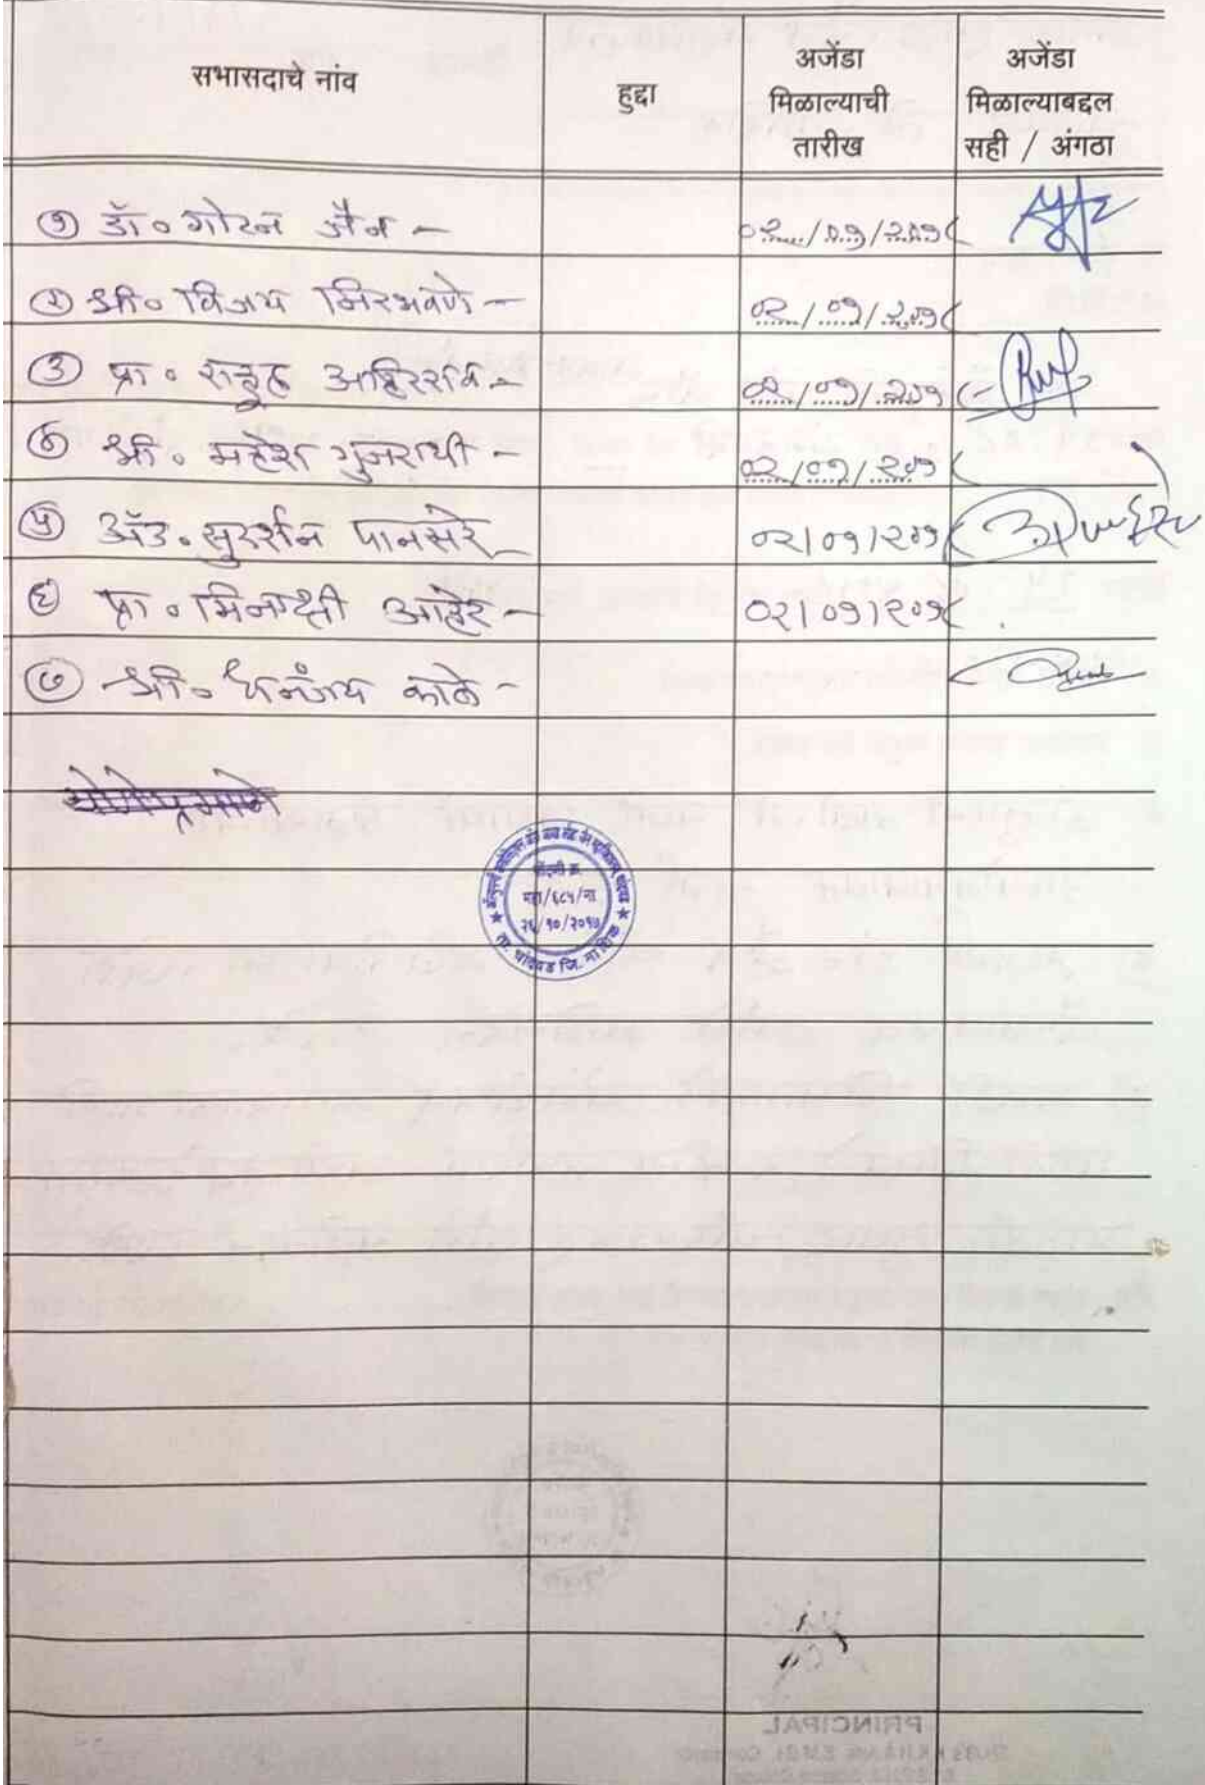 सभासदाचे नांव
हुद्दा
अजेंडा
मिळाल्याची
तारीख
अजेंडा
मिळाल्याबद्दल
सही / अंगठा
१ डॉ० गोटन जैन - ०२/०१/२०१८
२ श्री० विजय शिरभवणे - ०२/०१/२०१८
३ प्रा० राहूल अहिरराव - ०२/०१/२०१८
४ श्री० महेश गुजराथी - ०२/०१/२०१८
५ अॅड० सुदर्शन पानसरे ०२/०१/२०१८
६ प्रा० मिनाक्षी आहेर - ०२/०१/२०१८
७ श्री० धनंजय काळे -
नोंदणी क्र.
महा/६८५/ना
२६/१०/२०१७
ता. चांदवड जि. नाशिक
PRINCIPAL